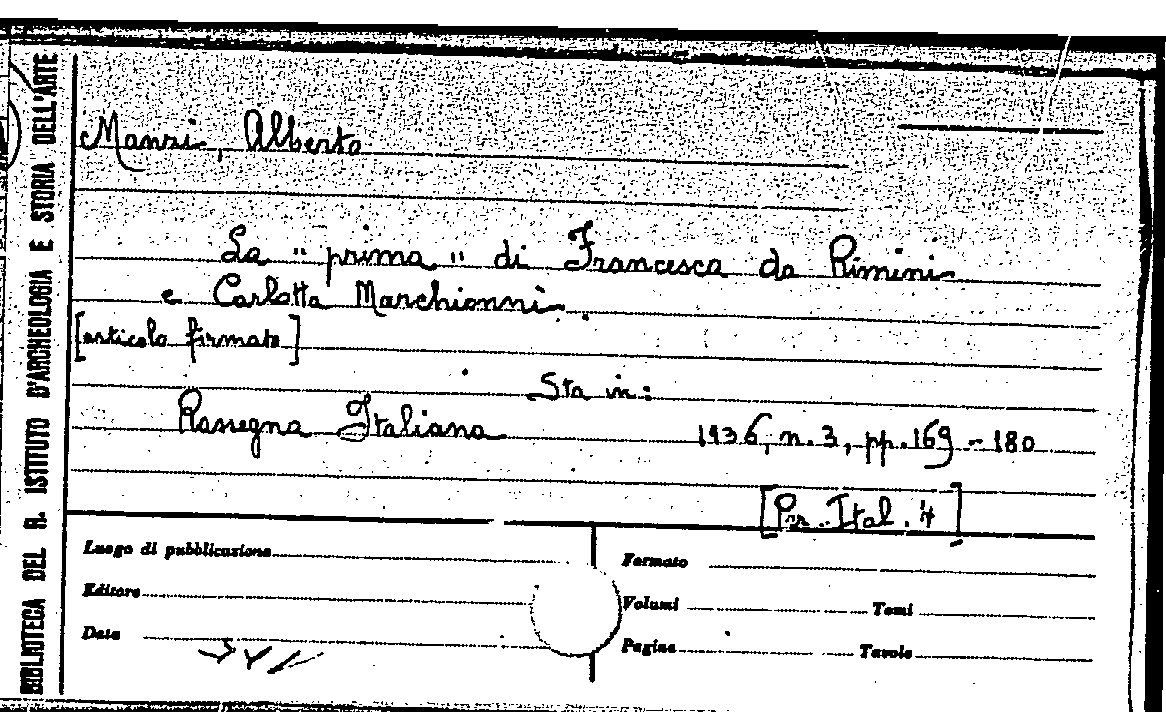 BIBLIOTECA DEL R. ISTITUTO D'ARCHEOLOGIA E STORIA DELL'ARTE
Manzi, Alberto
La "prima" di Francesca da Rimini
e Carlotta Marchionni.
[articolo firmato]
Sta in:
Rassegna Italiana 1936, n. 3, pp. 169-180
[Per. Ital. 4]
Luogo di pubblicazione
Formato
Editore
Volumi Tomi
Data
Pagine Tavole